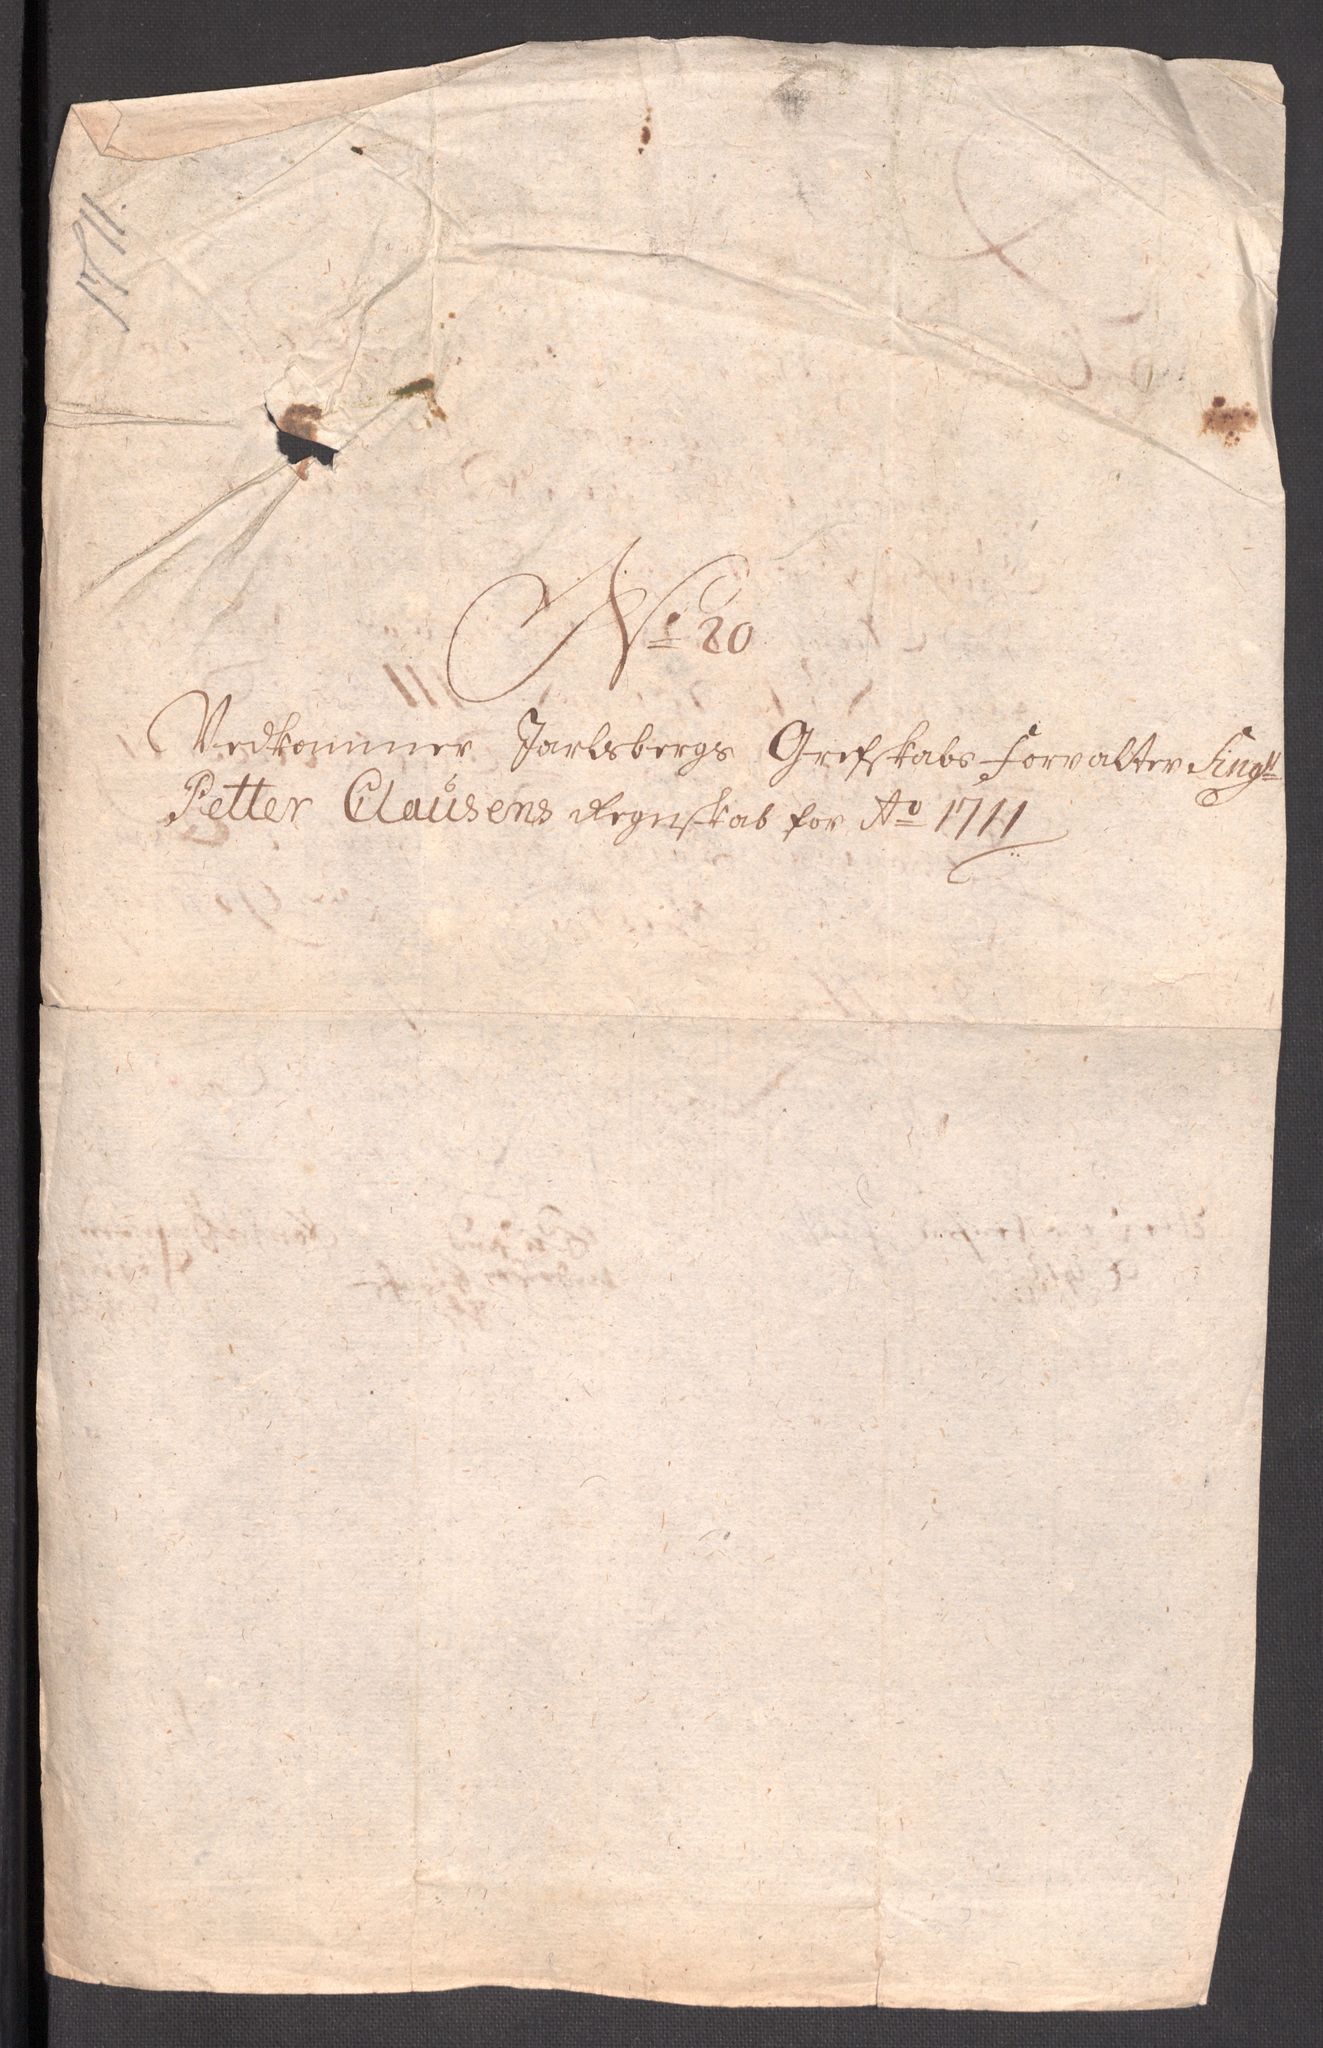 1711.
No 20
Vedkommer Jarlsbergs Grefskabs Forvalter Singr
Petter Clausens Regnskab for Ao 1711